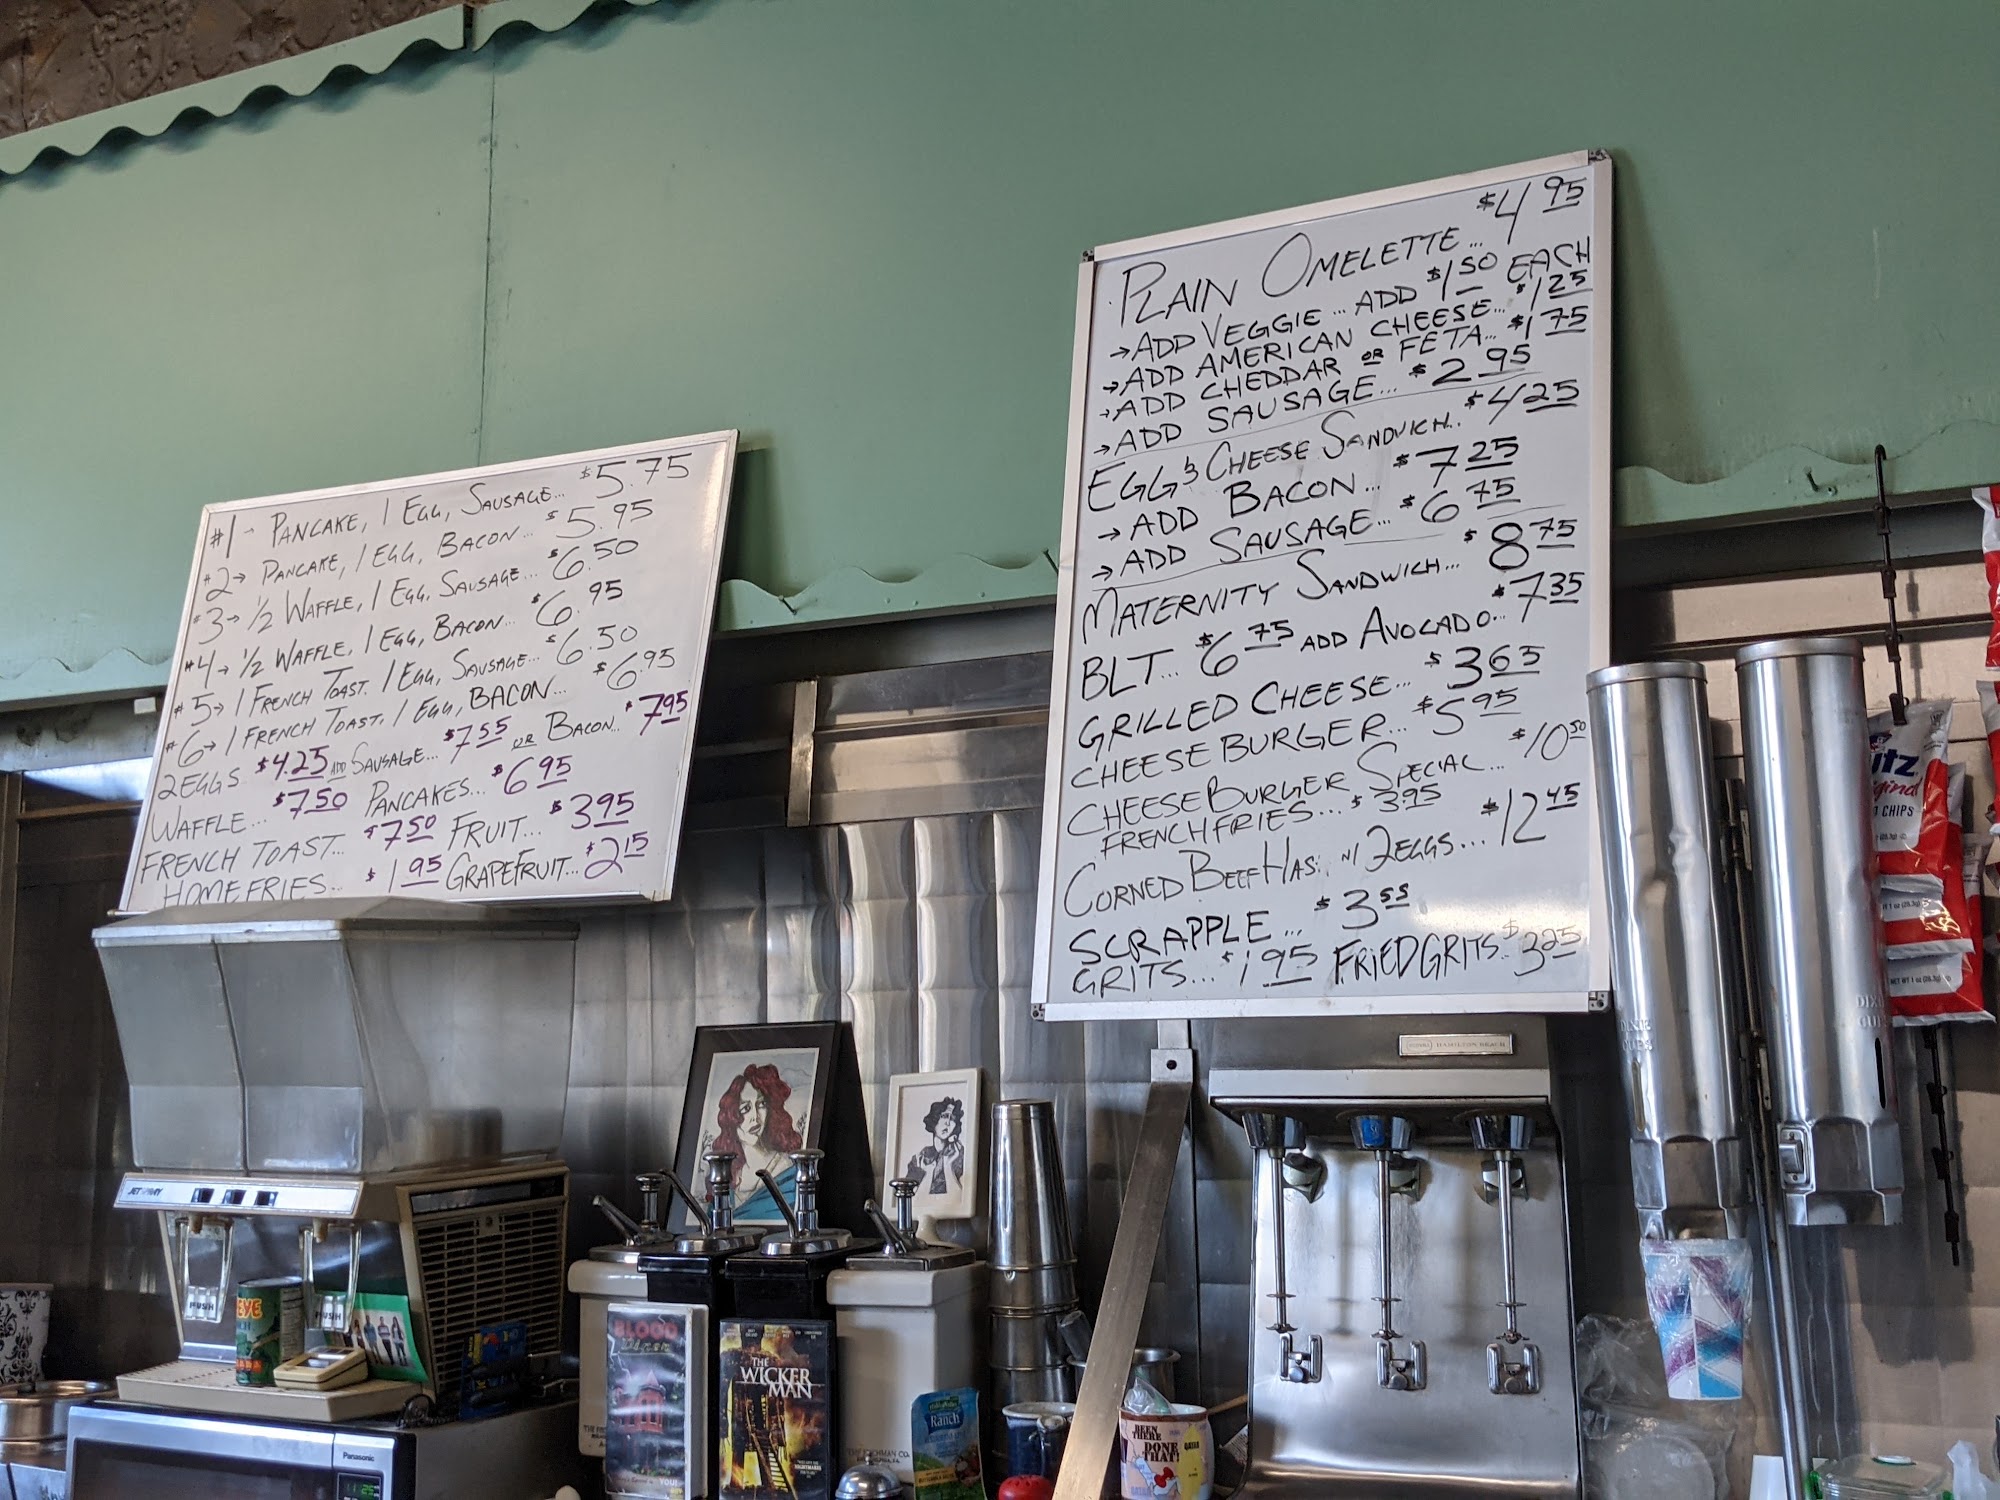 #1 → PANCAKE, 1 EGG, SAUSAGE... $5.75
#2 → PANCAKE, 1 EGG, BACON... $5.95
#3 → 1/2 WAFFLE, 1 EGG, SAUSAGE... $6.50
#4 → 1/2 WAFFLE, 1 EGG, BACON... $6.95
#5 → 1 FRENCH TOAST, 1 EGG, SAUSAGE... $6.50
#6 → 1 FRENCH TOAST, 1 EGG, BACON... $6.95
2 EGGS $4.25 ADD SAUSAGE... $7.55 OR BACON... $7.95
WAFFLE... $7.50 PANCAKES... $6.95
FRENCH TOAST... $7.50 FRUIT... $3.95
HOMEFRIES... $1.95 GRAPEFRUIT... $2.15
PLAIN OMELETTE... $4.95
→ ADD VEGGIE... ADD $1.50 EACH
→ ADD AMERICAN CHEESE... $1.25
→ ADD CHEDDAR OR FETA... $1.75
→ ADD SAUSAGE... $2.95
EGG & CHEESE SANDWICH.. $4.25
→ ADD BACON... $7.25
→ ADD SAUSAGE... $6.75
MATERNITY SANDWICH... $8.75
BLT... $6.75 ADD AVOCADO... $7.35
GRILLED CHEESE... $3.65
CHEESEBURGER... $5.95
CHEESEBURGER SPECIAL... $10.50
FRENCH FRIES... $3.95
CORNED BEEF HAS.. W/ 2 EGGS... $12.45
SCRAPPLE... $3.55
GRITS... $1.95 FRIED GRITS.. $3.25
HAMILTON BEACH
DIXIE
CUPS
DIXIE
CUPS
utz
Original
CHIPS
NET WT 1 oz (28.3g)
JET SPRAY
PUSH
PUSH
EYE
Panasonic
11:25
BLOOD
Diner
THE
WICKER
MAN
Ranch
BEEN
THERE
DONE
THAT!
QATAR